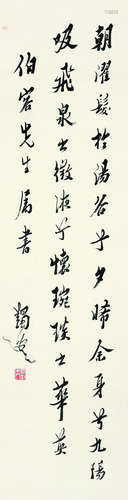 朝濯髮於湯谷兮夕晞余身兮九陽
吸飛泉之微液兮懷琬琰之華英
伯容先生屬書